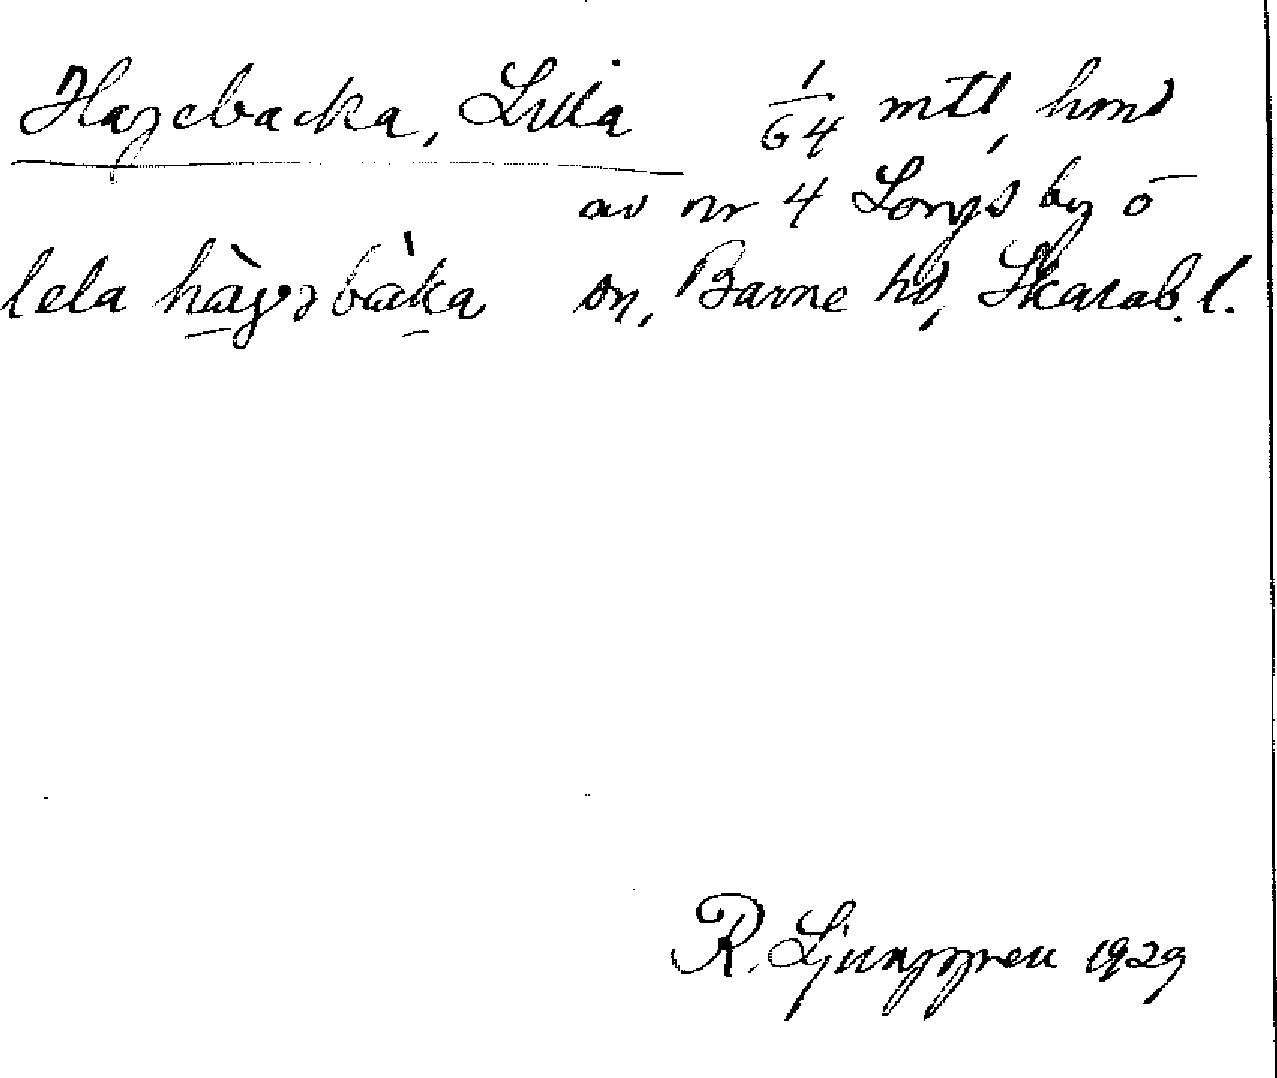 Hagebacka, Lilla 1/64 mtl, hmd
av nr 4 Longs by o
lela hàgəbàka sn, Barne hd, Skarab. l.
R. Ljunggren 1929